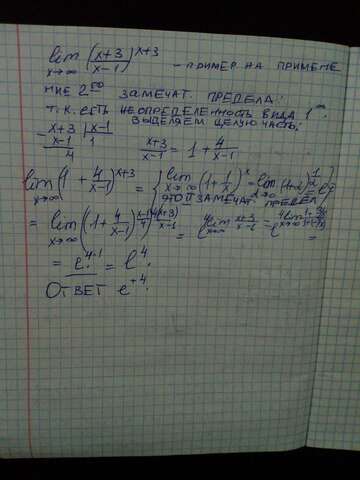 lim x→∞ (x+3/x-1)^x+3 - ПРИМЕР НА ПРИМЕНЕ
НИЕ 2го ЗАМЕЧАТ. ПРЕДЕЛА:
Т.К. ЕСТЬ НЕОПРЕДЕЛЕННОСТЬ ВИДА 1^∞.
ВЫДЕЛЯЕМ ЦЕЛУЮ ЧАСТЬ:
- x+3 | x-1
x-1 1
4
x+3/x-1 = 1 + 4/x-1
lim x→∞ (1 + 4/x-1)^x+3 = { lim x→∞ (1 + 1/x)^x = lim α→0 (1+α)^1/α = e }
ЭТО II ЗАМЕЧАТ. ПРЕДЕЛ
= lim x→∞ (1 + 4/x-1)^x-1/4 · 4(x+3)/x-1 = e^4 lim x→∞ x+3/x-1 = e^4 lim x→∞ 1+3/x / 1-1/x =
= e^4·1 = e^4.
ОТВЕТ e^+4.